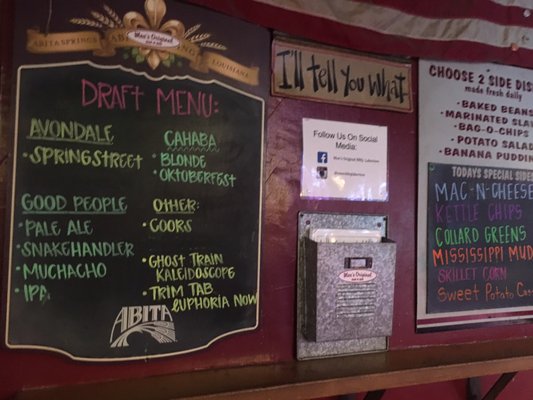 Moe's Original
LOUISIANA
DRAFT MENU:
AVONDALE
• SPRINGSTREET
GOOD PEOPLE
• PALE ALE
• SNAKEHANDLER
• MUCHACHO
• IPA
CAHABA
• BLONDE
• OKTOBERFEST
OTHER:
• COORS
• GHOST TRAIN
KALEIDOSCOPE
• TRIM TAB
EUPHORIA NOW
ABITA
I'll tell You WHAT
Follow Us On Social
Media:
Moe's Original BBQ
Moe's Original
CHOOSE 2 SIDE DIS
made fresh daily
• BAKED BEANS
• MARINATED SLA
• BAG-O-CHIPS
• POTATO SALAD
• BANANA PUDDIN
TODAYS SPECIAL SIDES
MAC-N-CHEESE
KETTLE CHIPS
COLLARD GREENS
MISSISSIPPI MUD
SKILLET CORN
SWEET POTATO